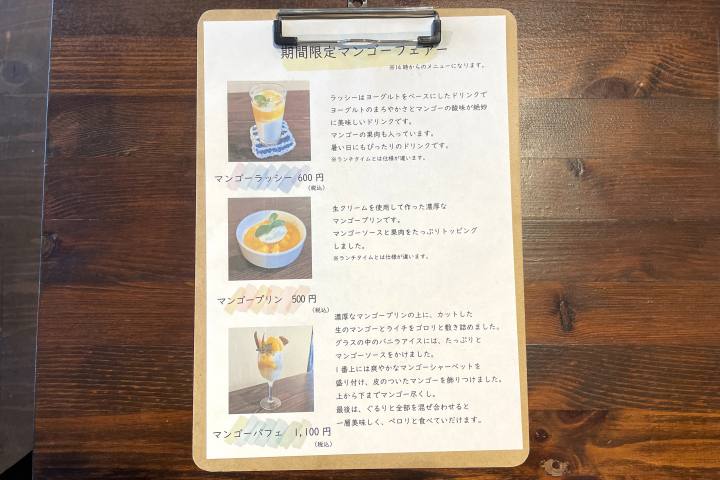 期間限定マンゴーフェアー
※14時からのメニューになります。
ラッシーはヨーグルトをベースにしたドリンクで
ヨーグルトのまろやかさとマンゴーの酸味が絶妙
に美味しいドリンクです。
マンゴーの果肉も入っています。
暑い日にもぴったりのドリンクです。
※ランチタイムとは仕様が違います。
マンゴーラッシー 600円
(税込)
生クリームを使用して作った濃厚な
マンゴープリンです。
マンゴーソースと果肉をたっぷりトッピング
しました。
※ランチタイムとは仕様が違います。
マンゴープリン 500円
(税込)
濃厚なマンゴープリンの上に、カットした
生のマンゴーとライチをゴロリと敷き詰めました。
グラスの中のバニラアイスには、たっぷりと
マンゴーソースをかけました。
1番上には爽やかなマンゴーシャーベットを
盛り付け、皮のついたマンゴーを飾りつけました。
上から下までマンゴー尽くし。
最後は、ぐるりと全部を混ぜ合わせると
一層美味しく、ペロリと食べていだけます。
マンゴーパフェ 1,100円
(税込)